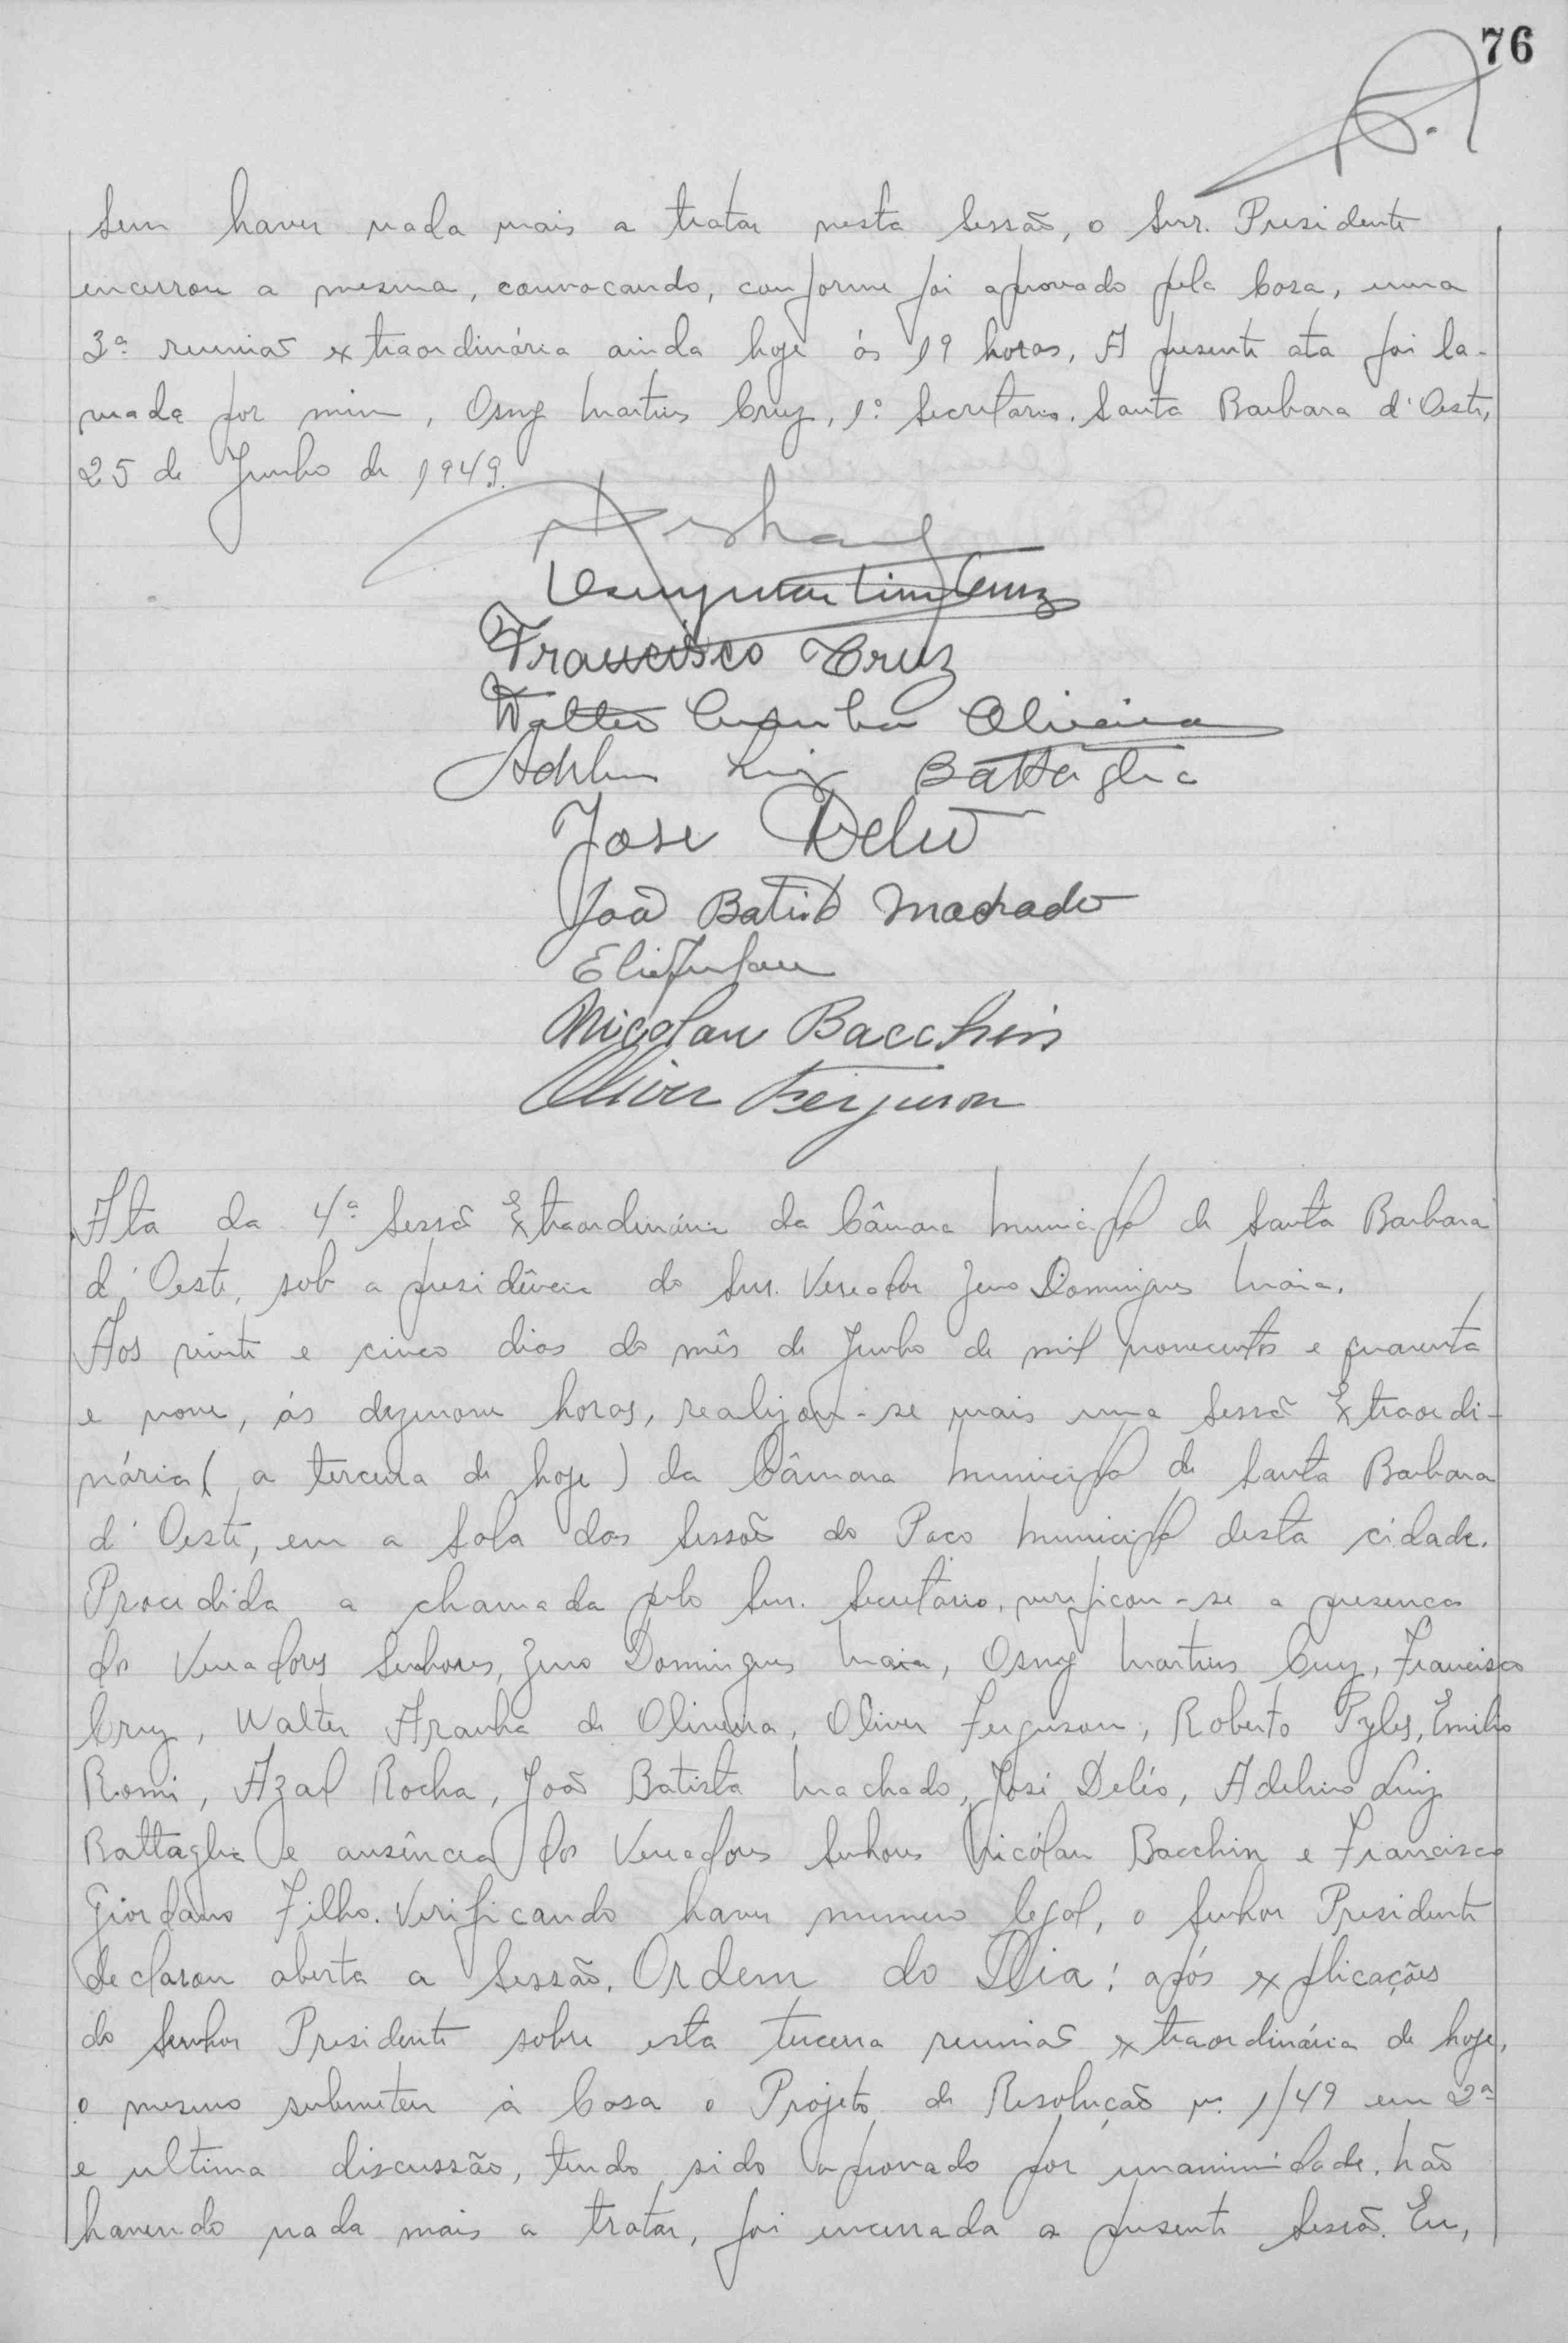 76
Sem haver nada mais a tratar nesta Sessão, o Snr. Presidente
encerrou a mesma, convocando, conforme foi aprovado pela Casa, uma
3ª reunião extraordinária ainda hoje ás 19 horas. A presente ata foi la-
vrada por mim, Osny Martins Cruz, 1º Secretário. Santa Barbara d'Oeste,
25 de Junho de 1949.
Osny Martins Cruz
Francisco Cruz
Walter Aranha Oliveira
Adelino Luiz Battaglia
Jose Delio
João Batista Machado
Nicolau Bacchin
Oliver Ferguson
Ata da 4ª Sessão Extraordinária da Câmara Municipal de Santa Barbara
d'Oeste, sob a presidência do Snr. Vereador Zeno Domingues Maia.
Aos vinte e cinco dias do mês de Junho de mil novecentos e quarenta
e nove, ás dezenove horas, realizou-se mais uma Sessão Extraordi-
nária (a terceira de hoje) da Câmara Municipal de Santa Barbara
d'Oeste, em a Sala das Sessões do Paco Municipal desta cidade.
Procedida a chamada pelo Snr. Secretário, verificou-se a presença
dos Vereadores Senhores, Zeno Domingues Maia, Osny Martins Cruz, Francisco
Cruz, Walter Aranha de Oliveira, Oliver Ferguson, Roberto Pyles, Emilio
Romi, Azael Rocha, João Batista Machado, José Delio, Adelino Luiz
Battaglia e ausência dos Vereadores Senhores Nicolau Bacchin e Francisco
Giordano Filho. Verificando haver numero legal, o Senhor Presidente
declarou aberta a Sessão. Ordem do Dia: após explicações
do Senhor Presidente sobre esta terceira reunião extraordinária de hoje,
o mesmo submeteu à Casa o Projeto de Resolução n. 1/49 em 2ª
e ultima discussão, tendo sido aprovado por unanimidade. Não
havendo nada mais a tratar, foi encerrada a presente Sessão. Eu,